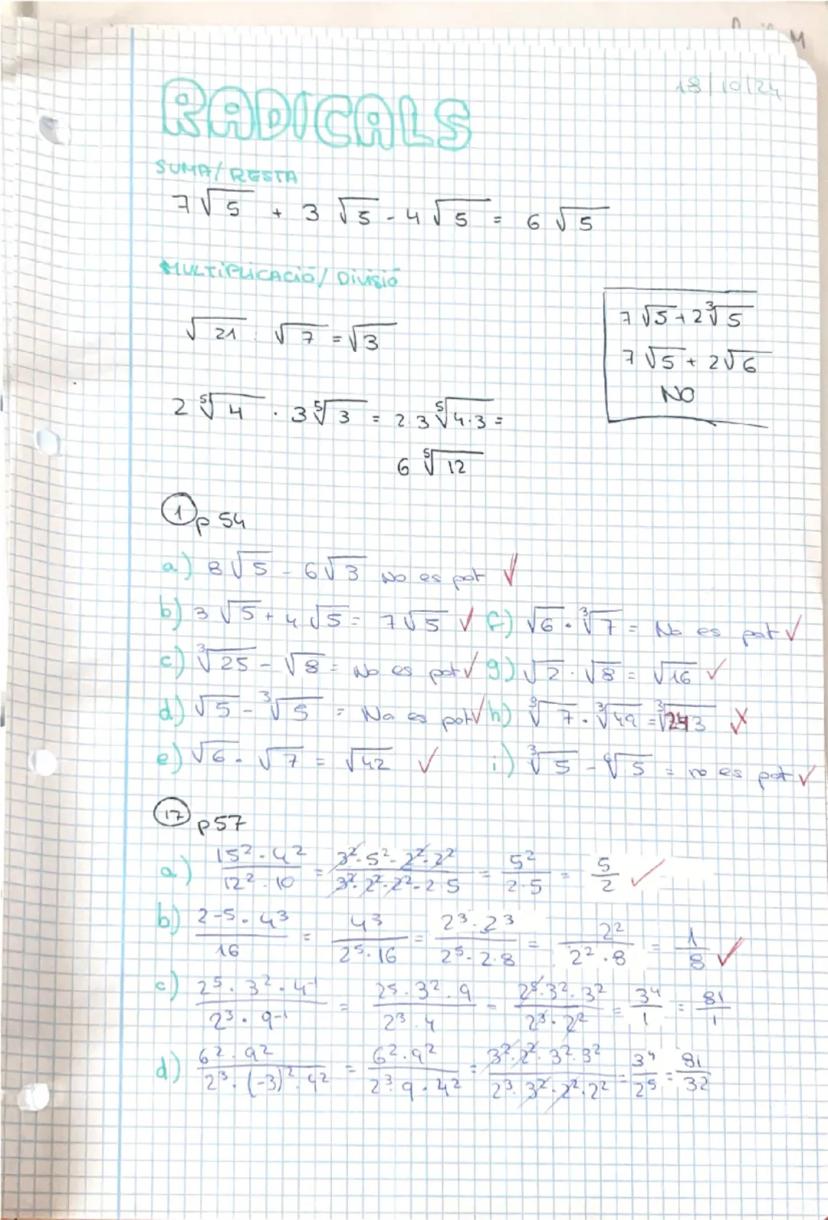 18/10/24
RADICALS
SUMA/RESTA
7√5 + 3√5 - 4√5 = 6√5
MULTIPLICACIÓ/DIVISIÓ
√21 : √7 = √3
7√5 + 2∛5
7√5 + 2√6
NO
2 ⁵√4 · 3 ⁵√3 = 2·3 ⁵√4·3 =
6 ⁵√12
① p 54
a) 8√5 - 6√3 No es pot ✓
b) 3√5 + 4√5 = 7√5 ✓
c) ∛25 - √8 = No es pot ✓
d) √5 - ∛5 = No es pot ✓
e) √6 · √7 = √42 ✓
f) √6 · ∛7 = No es pot ✓
g) √2 · √8 = √16 ✓
h) ∛7 · ∛49 = ∛243 ✗
i) ∛5 - ⁴√5 = no es pot ✓
⑰ p57
a) 15²·4² / 12²·10 = 3²·5²·2²·2² / 3²·2²·2²·2·5 = 5² / 2·5 = 5/2 ✓
b) 2-5·4³ / 16 = 4³ / 2⁵·16 = 2³·2³ / 2⁵·2·8 = 2² / 2²·8 = 1/8 ✓
c) 2⁵·3²·4⁻¹ / 2³·9⁻¹ = 2⁵·3²·9 / 2³·4 = 2⁵·3²·3² / 2³·2² = 3⁴/1 = 81/1
d) 6²·9² / 2³·(-3)²·4² = 6²·9² / 2³·9·4² = 3²·2²·3²·3² / 2³·3²·2²·2² = 3⁴/2⁵ = 81/32